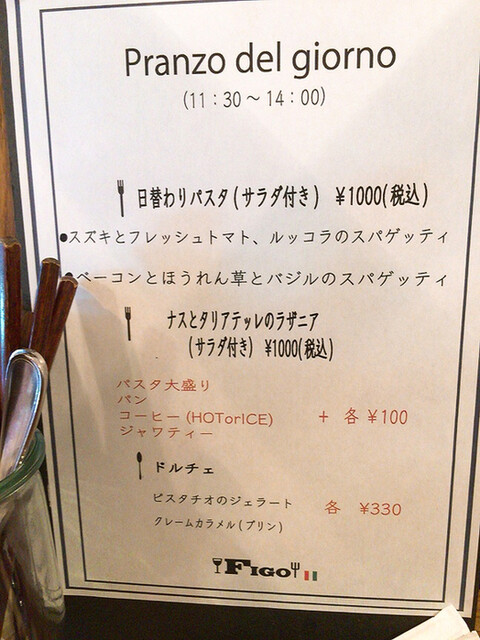 Pranzo del giorno
(11:30～14:00)
日替わりパスタ(サラダ付き) ¥1000(税込)
●スズキとフレッシュトマト、ルッコラのスパゲッティ
●ベーコンとほうれん草とバジルのスパゲッティ
ナスとタリアテッレのラザニア
(サラダ付き) ¥1000(税込)
パスタ大盛り
パン
コーヒー(HOTorICE) + 各¥100
ジャワティー
ドルチェ
ピスタチオのジェラート
各 ¥330
クレームカラメル(プリン)
FIGO